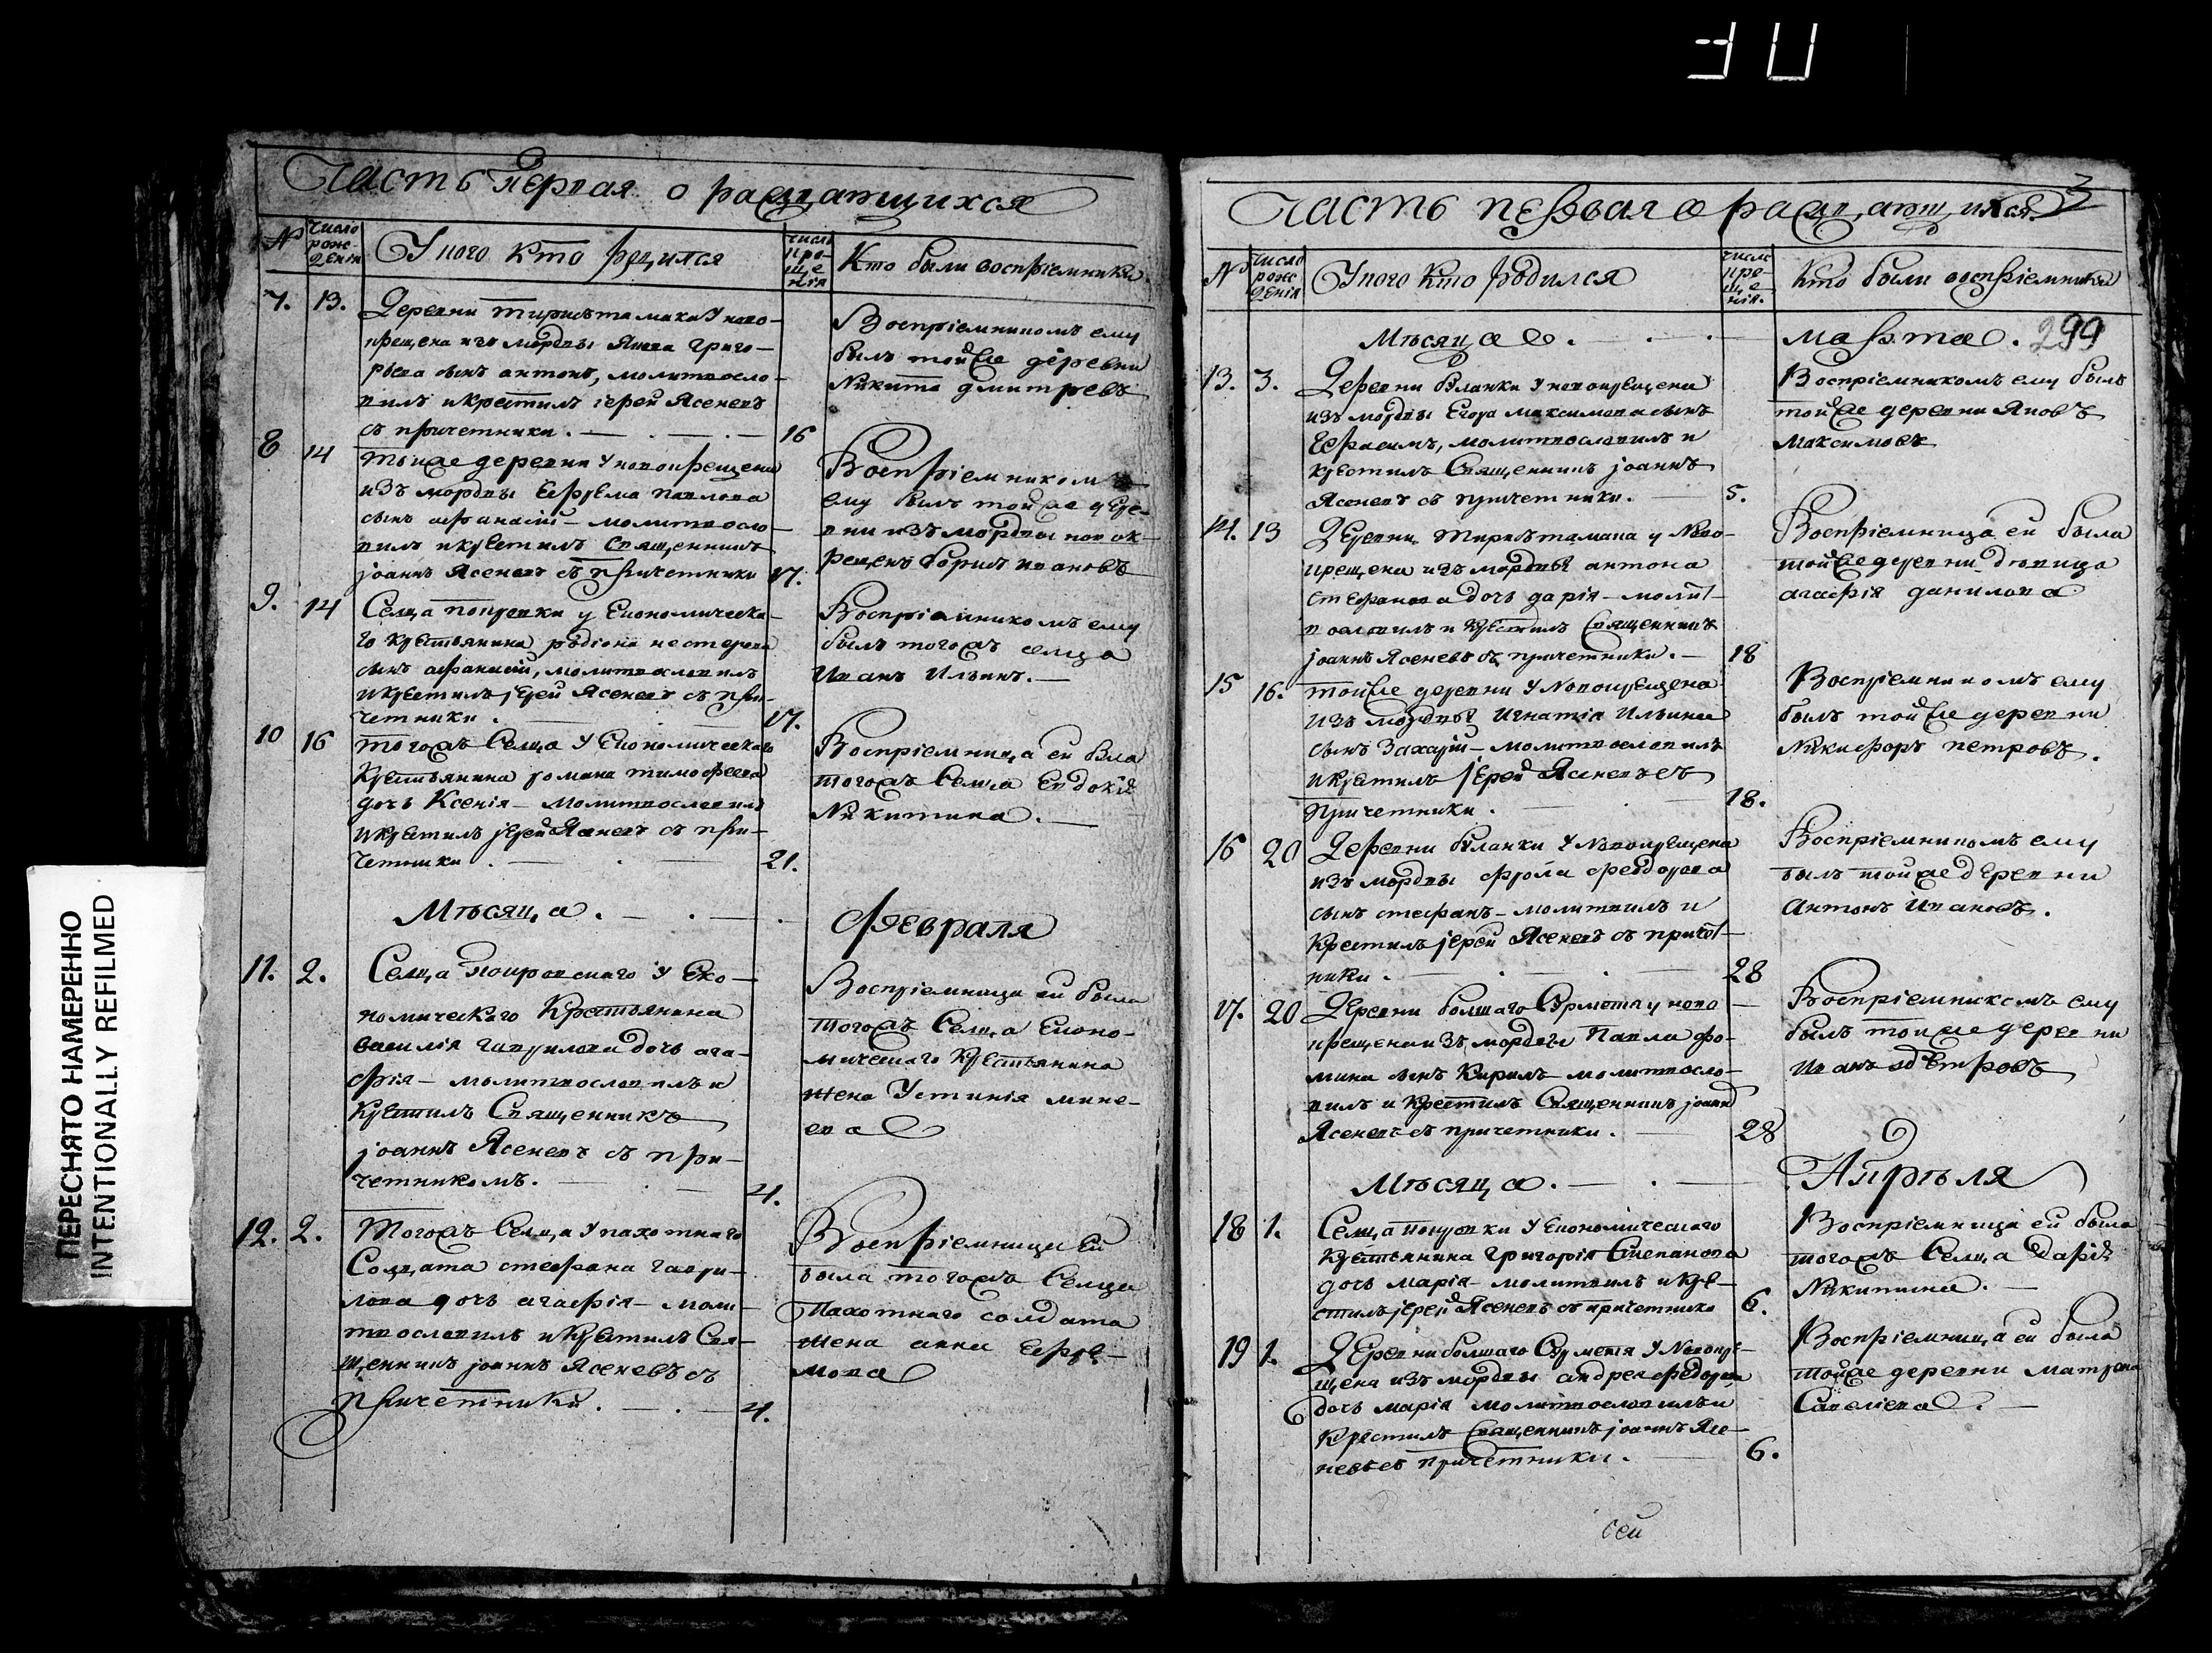 ПЕРЕСНЯТО НАМЕРЕННО
INTENTIONALLY REFILMED
Часть первая о раждающихся
№
число рож-дения
У кого кто родился
число кре-ще-ния
Кто были восприемники
7. 13.
Деревни
крещена изъ мордвы Якова Григо-
рьева сынъ антонъ, молитвосло-
вилъ и крестилъ iерей Ясеневъ
съ причетники. 16
Восприемникомъ ему
былъ той же деревни
Никита дмитревъ
8 14
той же деревни у новокрещена
изъ мордвы Ефрема павлова
сынъ афанасiй – молитвосло-
вилъ и крестилъ священникъ
jоаннъ Ясеневъ съ причетники 17.
Воспрiемникомъ
ему былъ той же дере-
вни изъ мордвы новок-
рещенъ борисъ ивановъ
9. 14
Селца покровки у Економическа-
го крестьянина родiона нестерова
сынъ афанасiй, молитвословилъ
и крестилъ jерей Ясеневъ съ при-
четники. 17.
Воспрiемникомъ ему
былъ тогожъ селца
Иванъ Ильинъ. –
10 16
тогожъ Селца у Економическаго
Крестьянина романа тимофеева
дочь Ксенiя – молитвословилъ
и крестилъ jерей Ясеневъ съ при-
четники. 21.
Воспрiемница ей была
тогожъ Селца Евдокiя
Никитина. –
Мѣсяца. Февраля
11. 2.
Селца покровскаго у Еко-
номическаго Крестьянина
василiя гаврилова дочь ага-
фiя – молитвословилъ и
Крестилъ Священникъ
jоаннъ Ясеневъ съ при-
четникомъ. 4.
Воспрiемница ей была
тогожъ Селца Еконо-
мическаго Крестьянина
жена Устинiя мине-
ева
12. 2.
Тогожъ Селца у пахотнаго
Солдата стефана гаври-
лова дочь агафiя – моли-
твословилъ и крестилъ Свя-
щенникъ jоаннъ Ясеневъ съ
причетники. 4.
Воспрiемница Ей
была тогожъ Селца
Пахотнаго солдата
жена анна Ефре-
мова
Часть первая о раждающихся 3
№
число рож-денiя
У кого кто родился
число кре-ще-нiя.
Кто были воспрiемники
Мѣсяца. марта. 299
13. 3.
Деревни бланки у новокрещена
изъ мордвы Егора максимова сынъ
Герасимъ, молитвословилъ и
крестилъ Священникъ jоаннъ
Ясеневъ съ причетники. 5.
Воспрiемникомъ ему былъ
той же деревни Яковъ
Максимовъ
14. 13
Деревни у Ново-
крещена изъ мордвы антона
стефанова дочь дарiя – молит-
вословилъ и крестилъ Священникъ
jоаннъ Ясеневъ съ причетники. – 18
Воспрiемница ей была
той же деревни девица
агафiя данилова
15 16.
той же деревни у Новокрещена
Изъ мордвы Игнатiя Ильина
сынъ Захарiй – молитвословилъ
и крестилъ jерей Ясеневъ съ
причетники. 18.
Воспрiемникомъ ему
былъ той же деревни
Никифоръ петровъ.
16 20
Деревни бланки у Новокрещена
изъ мордвы фрола федорова
сынъ стефанъ – молитвилъ и
Крестилъ jерей Ясеневъ съ причет-
ники. 28
Воспрiемникомъ ему
былъ той же деревни
антонъ ивановъ.
17. 20
Деревни болшаго у ново-
крещена изъ мордвы Павла фо-
мина сынъ Кирилъ – молитвосло-
вилъ и Крестилъ Священникъ jоаннъ
Ясеневъ съ причетники. 28
Воспрiемникомъ ему
былъ той же деревни
иванъ петровъ
Мѣсяца. Апрѣля
18 1.
Селца покровки у економическаго
крестьянина григорiя Степанова
дочь марiя – молитвилъ и кре-
стилъ jерей Ясеневъ съ причетники 6.
Воспрiемница ей была
тогожъ Селца Дарiя
Никитина. –
19 1.
Деревни болшаго у Новокре-
щена изъ мордвы андрея федорова
дочь марiя молитвословилъ и
Крестилъ Священникъ jоаннъ Ясе-
невъ съ причетники. 6.
Воспрiемница ей была
той же деревни матрена
Савелiева. –
сей